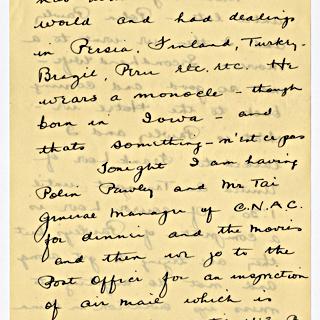 world and had dealings
in Persia, Finland, Turkey-
Brazil, Peru etc. etc. He
wears a monocle - though
born in Iowa - and
thats something - n'est ce pas
Tonight I am having
Polin Pawley and Mr Tai
General Manager of C.N.A.C.
for dinner and the movies
and then we go to the
Post Office for an inspection
of air mail which is